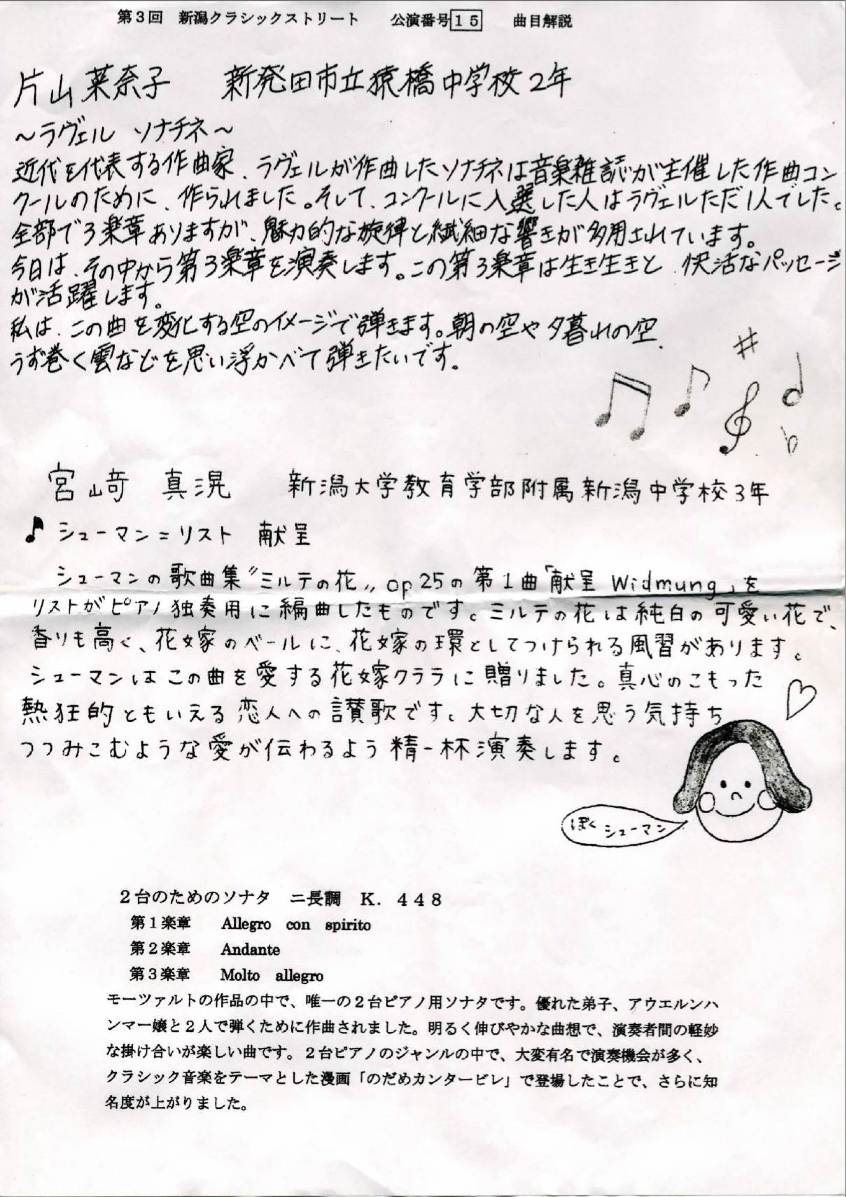 第3回　新潟クラシックストリート　公演番号15　曲目解説
片山菜奈子　新発田市立猿橋中学校2年
～ラヴェル ソナチネ～
近代を代表する作曲家、ラヴェルが作曲したソナチネは音楽雑誌が主催した作曲コン
クールのために、作られました。そして、コンクールに入選した人はラヴェルただ1人でした。
全部で3楽章ありますが、魅力的な旋律と繊細な響きが多用されています。
今日は、その中から第3楽章を演奏します。この第3楽章は生き生きと、快活なパッセージ
が活躍します。
私は、この曲を変化する空のイメージで弾きます。朝の空や夕暮れの空、
うず巻く雲などを思い浮かべて弾きたいです。
宮﨑 真滉　新潟大学教育学部附属新潟中学校3年
♪シューマン=リスト 献呈
シューマンの歌曲集〝ミルテの花〟op25の第1曲「献呈 Widmung」を
リストがピアノ独奏用に編曲したものです。ミルテの花は純白の可愛い花で、
香りも高く、花嫁のベールに、花嫁の環としてつけられる風習があります。
シューマンはこの曲を愛する花嫁クララに贈りました。真心のこもった
熱狂的ともいえる恋人への讃歌です。大切な人を思う気持ち
つつみこむような愛が伝わるよう精一杯演奏します。
ぼく シューマン
2台のためのソナタ　ニ長調　K．448
第1楽章　Allegro con spirito
第2楽章　Andante
第3楽章　Molto allegro
モーツァルトの作品の中で、唯一の2台ピアノ用ソナタです。優れた弟子、アウエルンハ
ンマー嬢と2人で弾くために作曲されました。明るく伸びやかな曲想で、演奏者間の軽妙
な掛け合いが楽しい曲です。2台ピアノのジャンルの中で、大変有名で演奏機会が多く、
クラシック音楽をテーマとした漫画「のだめカンタービレ」で登場したことで、さらに知
名度が上がりました。